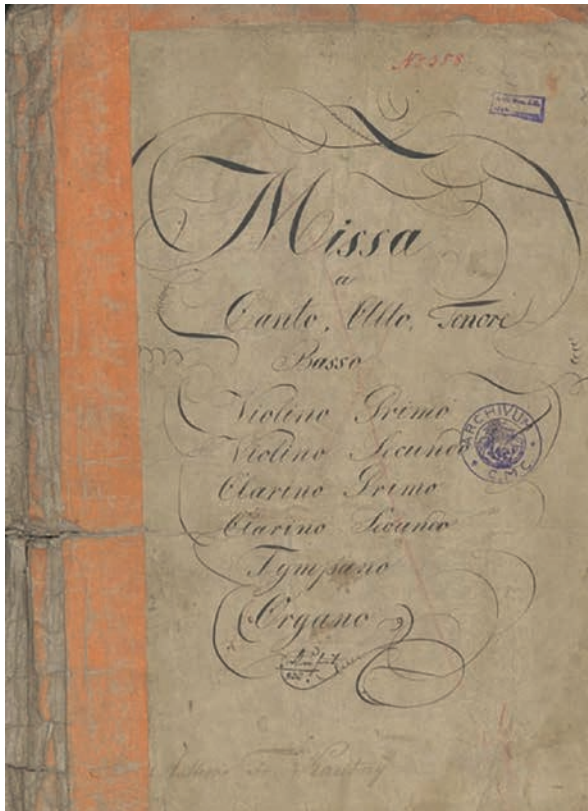 No 358.
Missa
a
Canto, Alto, Tenore
Basso
Violino Primo
Violino Secundo
Clarino Primo
Clarino Secundo
Tympano
Organo
ARCHIVUM
C.M.C.